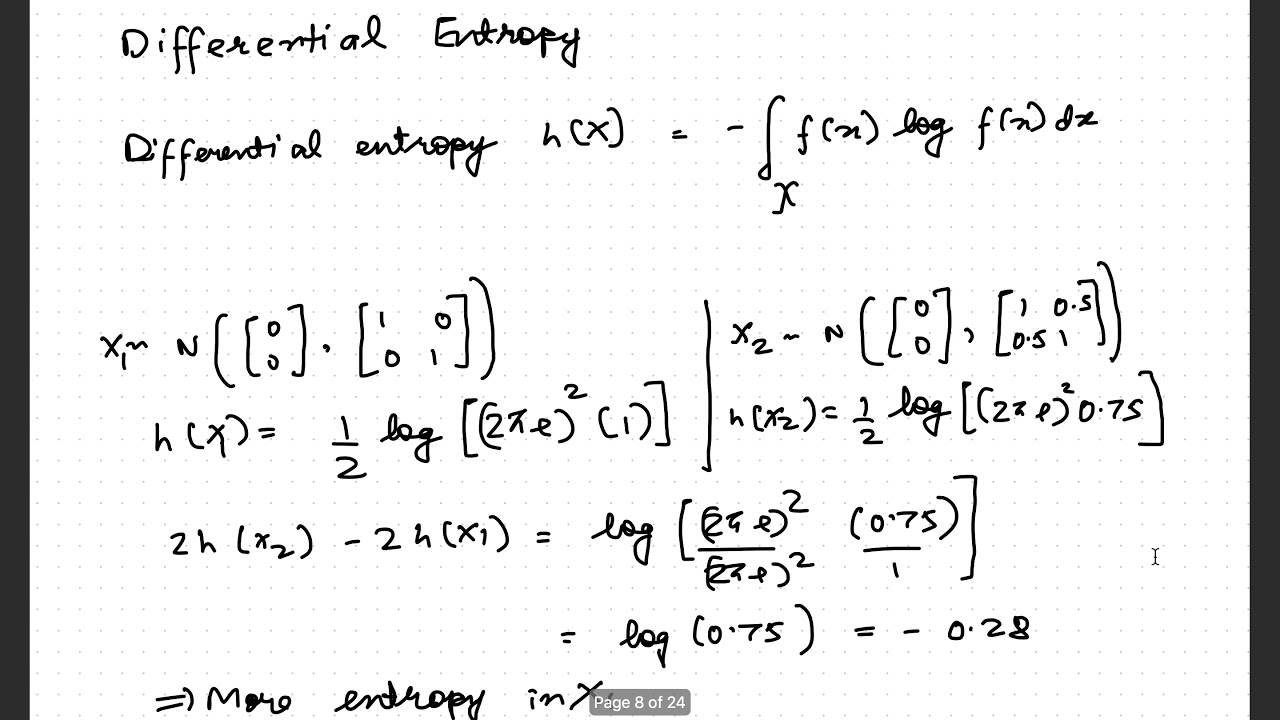 Differential Entropy
Differential entropy h(X) = - ∫_X f(x) log f(x) dx
X₁ ~ N([0 0], [1 0 0 1])
h(X₁) = 1/2 log [(2πe)² (1)]
X₂ ~ N([0 0], [1 0.5 0.5 1])
h(X₂) = 1/2 log [(2πe)² 0.75]
2h(X₂) - 2h(X₁) = log [(2πe)²/(2πe)² (0.75)/1]
= log (0.75) = - 0.28
⇒ More entropy in X
Page 8 of 24